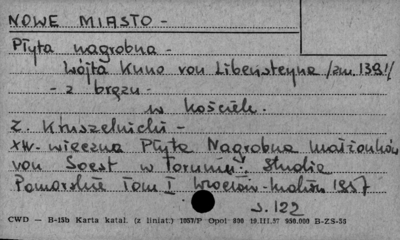 NOWE MIASTO -
Płyta nagrobna -
wójta Kuno von Libensteyna /zm. 1391/
- z brązu -
w kościele.
Z. Kruszelnicki -
XIV-wieczna Płyta Nagrobna małżonków
von Soest w Toruniu. Studia
Pomorskie Tom I Wrocław-Kraków 1957
s. 122
CWD — B-15b Karta katal. (z liniat.) 1957/P Opol 830 19.III.57 950.000 B-ZS-53